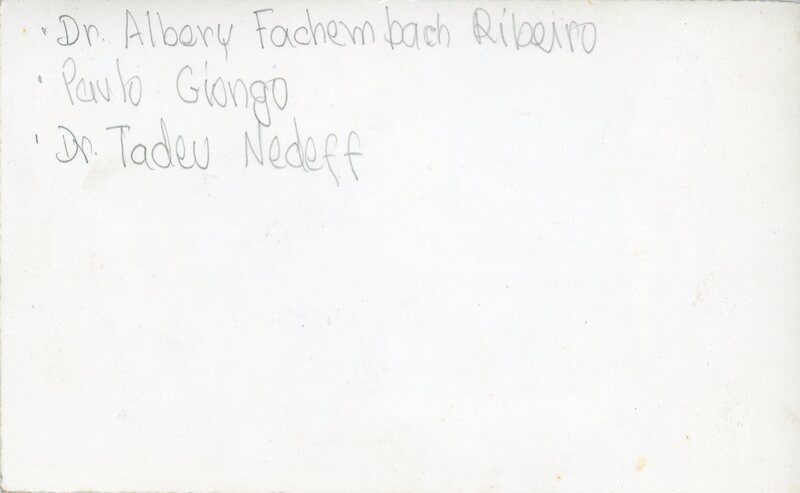 · Dr. Albery Fachembach Ribeiro
· Paulo Giongo
· Dr. Tadeu Nedeff